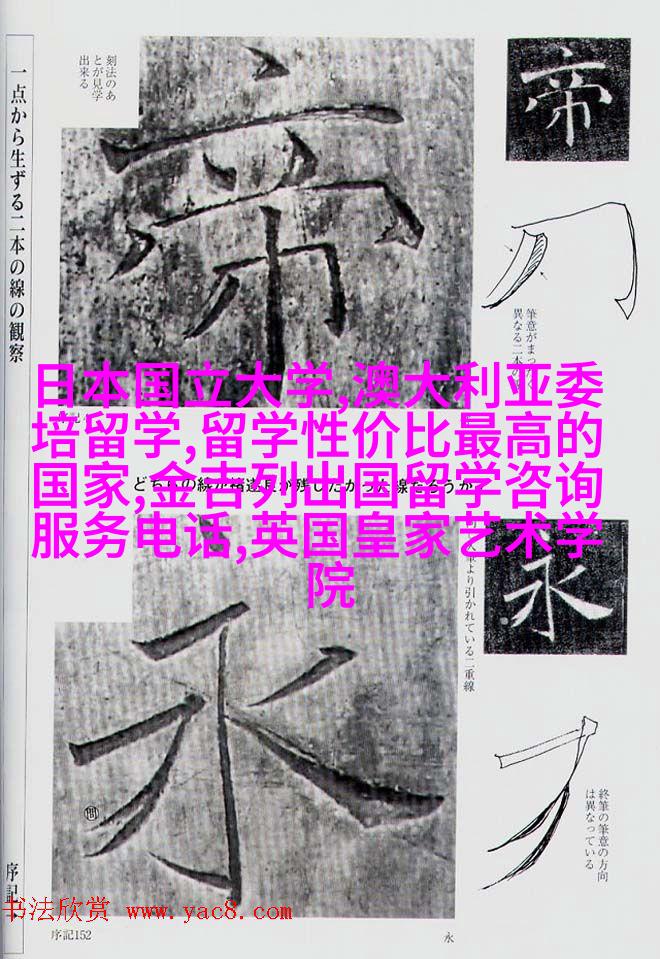 刻法のあ
とが見学
出来る
一点から生ずる二本の線の観察
帝
帝
筆意がまった
異なる二本の
日本国立大学,澳大利亚委
培留学,留学性价比最高的
国家,金吉列出国留学咨询
服务电话,英国皇家艺术学
院
より引かれている二重線
永
永
終筆の筆意の方向
は異なっている
序記
书法欣赏 www.yac8.com
序記152
永